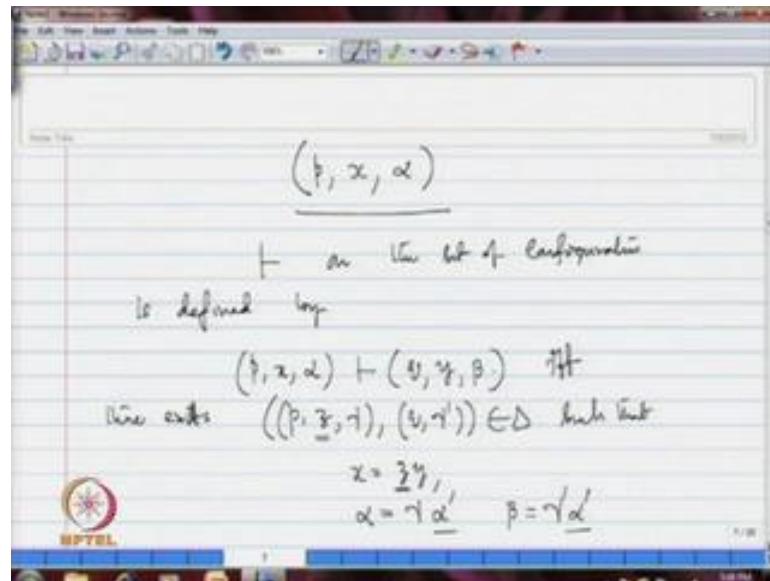 File Edit View Insert Actions Tools Help
Note Title
(p, x, α)
⊢ on the set of configurations
is defined by
(p, x, α) ⊢ (q, y, β) iff
there exists ((p, z, γ), (q, γ')) ∈ Δ such that
x = zy,
α = γ α' β = γ' α'
NPTEL